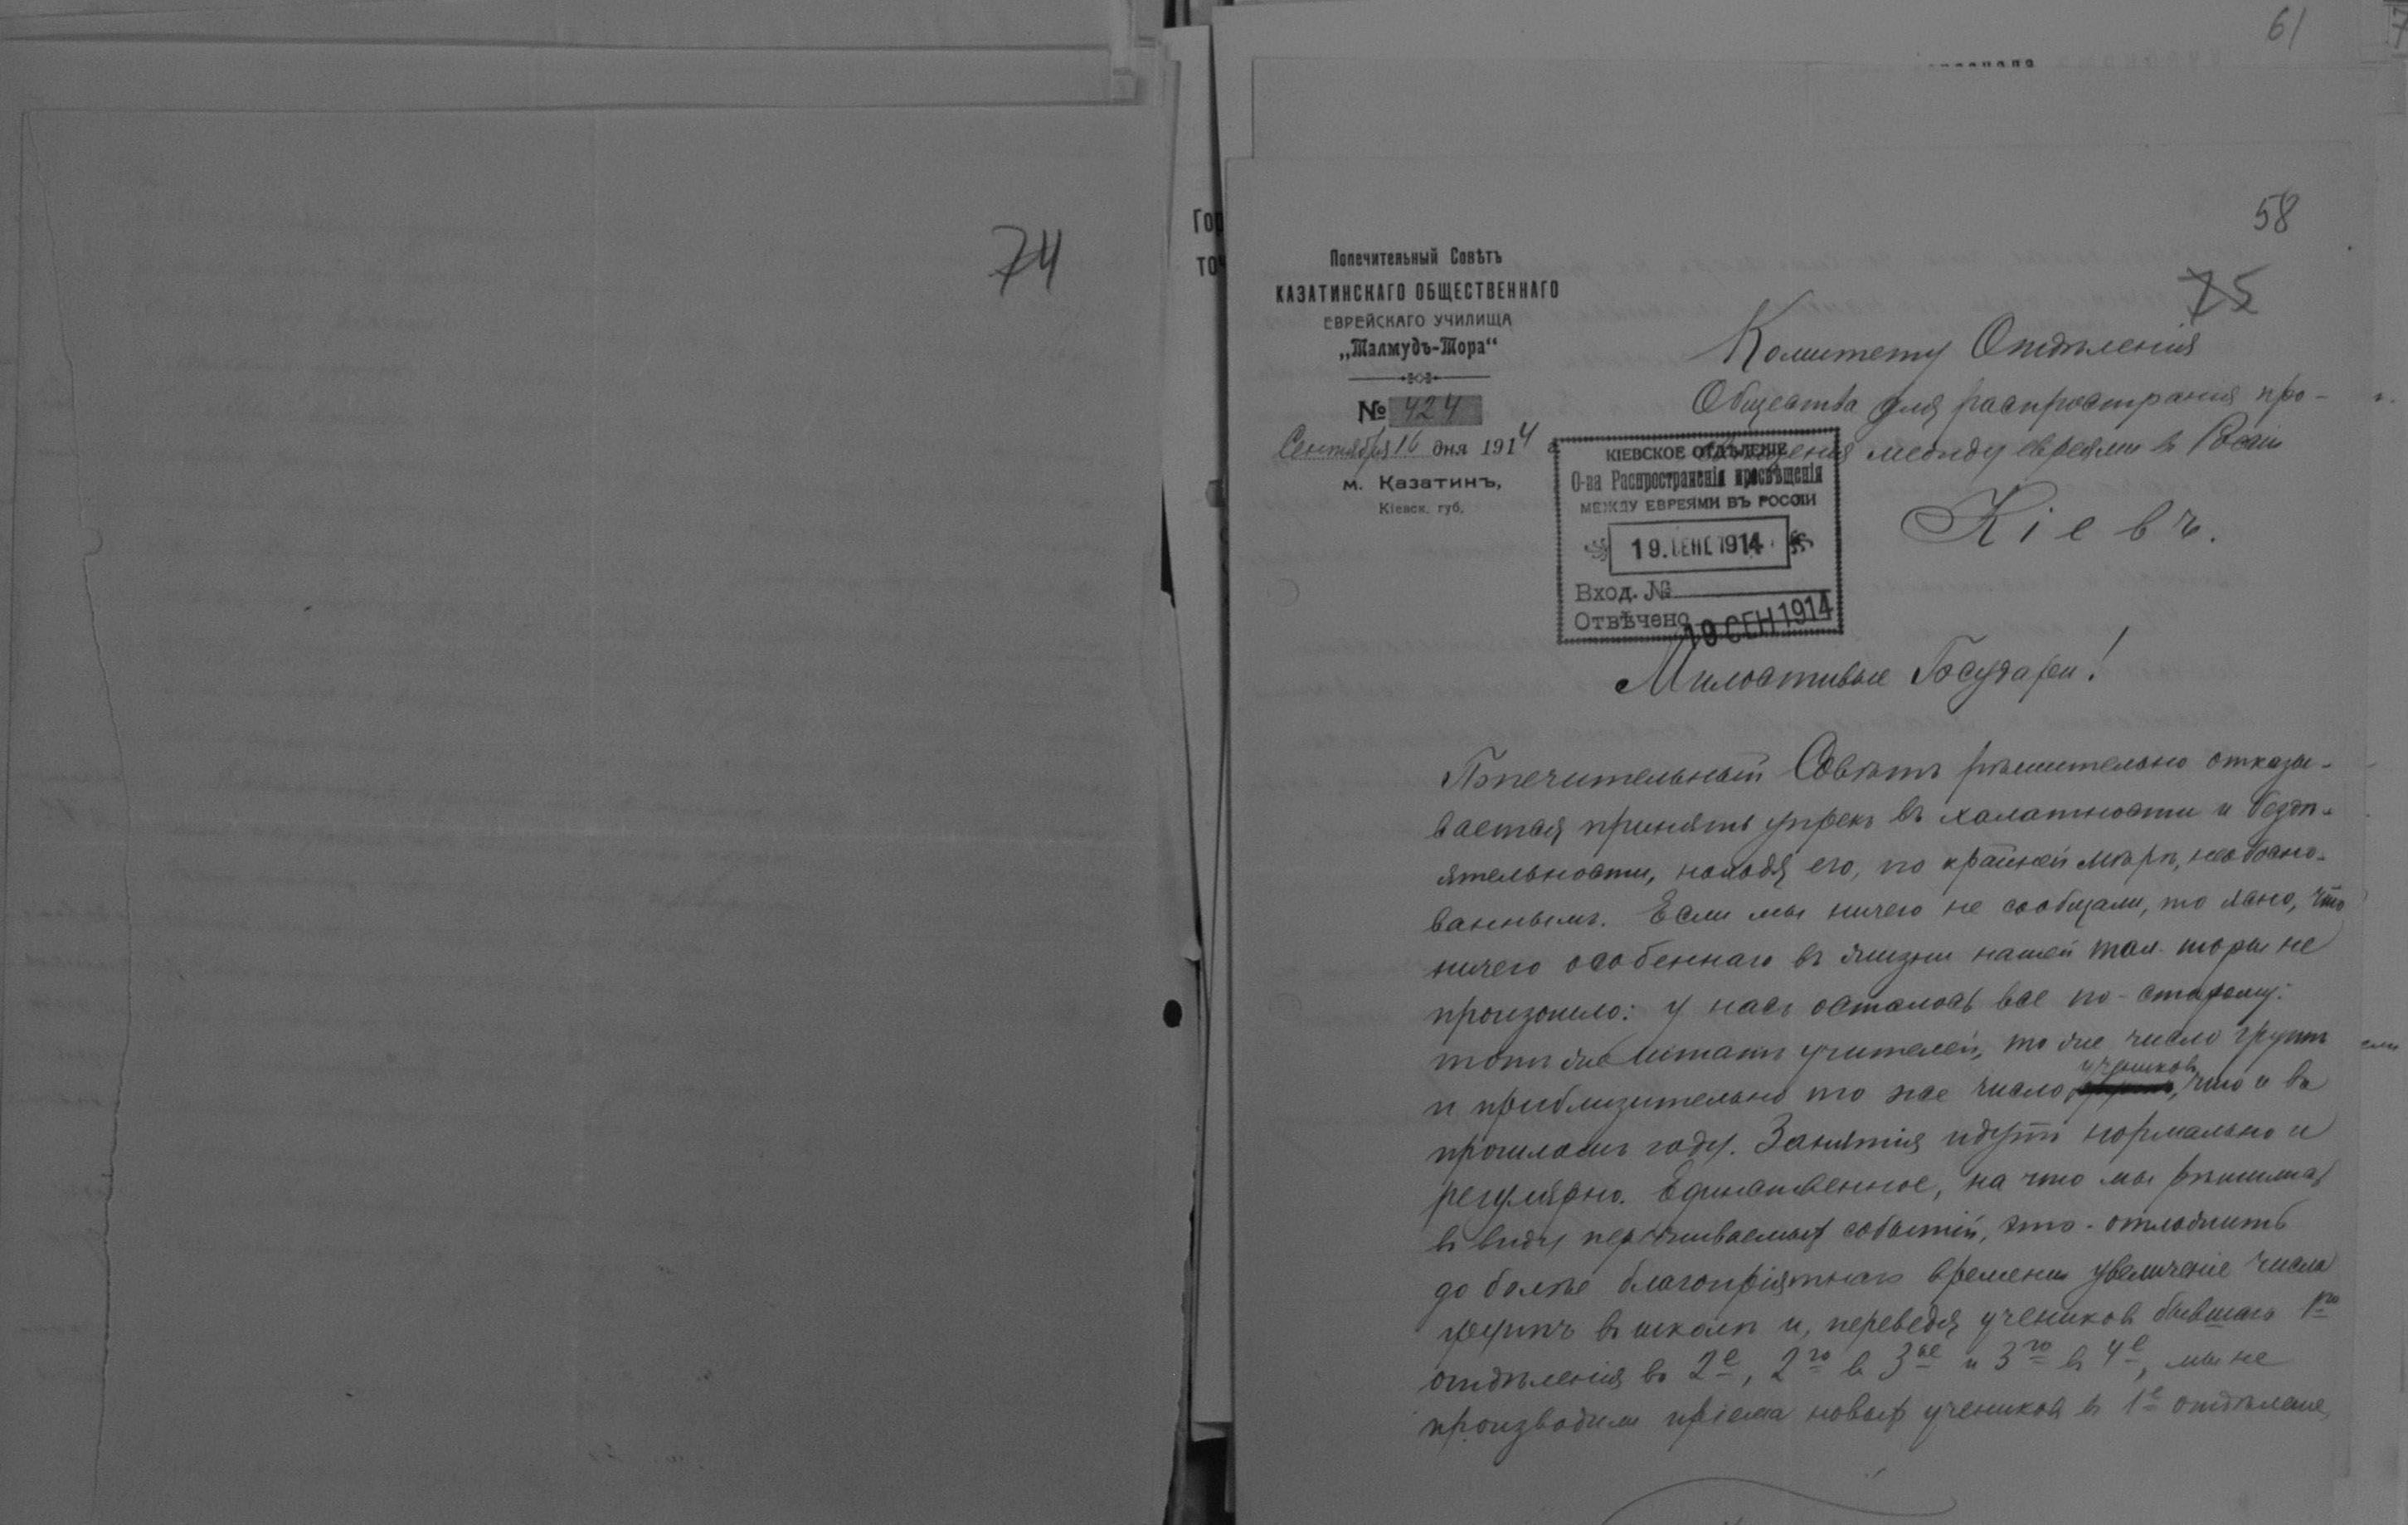 74
61
58
75
Попечительный Совѣтъ
КАЗАТИНСКАГО ОБЩЕСТВЕННАГО
ЕВРЕЙСКАГО УЧИЛИЩА
„Талмудъ-Тора“
№ 424
Сентября 16 дня 1914 г.
м. Казатинъ,
Кіевск. губ.
Комитету Отдѣленія
Общества для распространія про-
свѣщенія между евреями в Росіи
Кіевъ.
КІЕВСКОЕ ОТДѢЛЕНІЕ
О-ва Распространенія просвѣщенія
МЕЖДУ ЕВРЕЯМИ ВЪ РОССІИ
19. СЕНТ 1914
Вход. №
Отвѣчено 19 СЕН 1914
Милостивые Государи!
Попечительный Совѣтъ рѣшительно отказы-
вается принять упрекъ въ халатности и бездѣ-
ятельности, находя его, по крайней мѣрѣ, необосно-
ваннымъ. Если мы ничего не сообщали, то ясно, что
ничего особеннаго въ жизни нашей тал. торы не
произошло: у насъ осталось все по-старому:
тотъ же штатъ учителей, то же число группъ
и приблизительно то же число учениковъ, что и въ
прошломъ году. Занятія идутъ нормально и
регулярно. Единственное, на что мы рѣшились
въ виду переживаемыхъ событій, это - отложить
до болѣе благопріятнаго времени увеличеніе числа
группъ въ школѣ и, переведя учениковъ бывшаго 1го
отдѣленія во 2е, 2го в 3ье и 3го въ 4е, мы не
производили пріема новыхъ учениковъ въ 1е отдѣленіе,